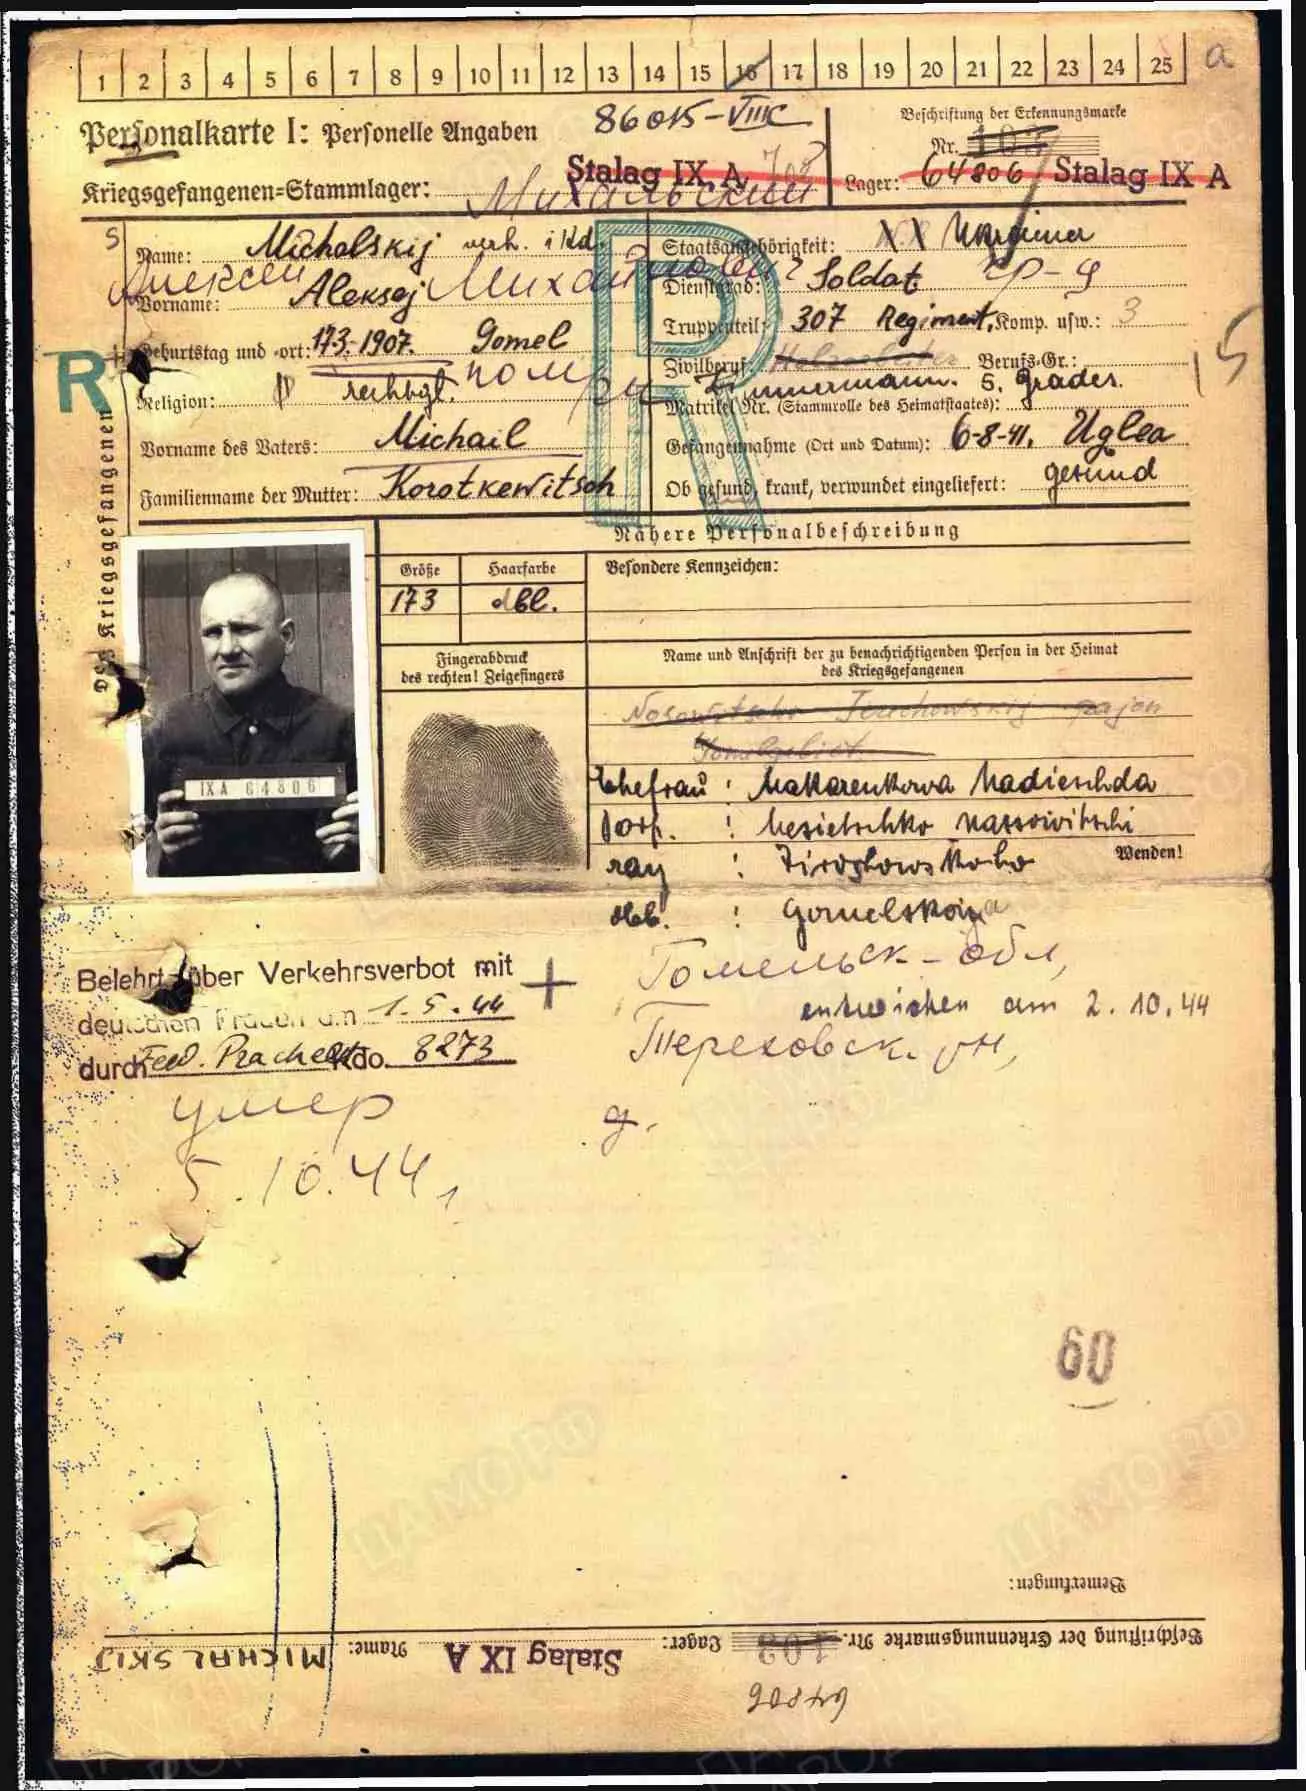 1 2 3 4 5 6 7 8 9 10 11 12 13 14 15 16 17 18 19 20 21 22 23 24 25 a
Personalkarte I: Personelle Angaben
86015-VIIIC
Beschriftung der Erkennungsmarke
Nr. 103
Kriegsgefangenen=Stammlager: Stalag IX A
Lager: 64806 Stalag IX A
Михальский
Name: Michalskij verh. 1 Kd.
Алексей Михайлович
Vorname: Aleksej
Geburtstag und -ort: 17.3.1907. Gomel
Religion: rechtgl.
Vorname des Vaters: Michail
Familienname der Mutter: Korotkewitsch
Staatsangehörigkeit: Ukrainer
Dienstgrad: Soldat
Truppenteil: 307 Regiment, Komp. usw.: 3
Zivilberuf: Berufs-Gr.:
Zimmermann. 6. Grades.
Matrikel Nr. (Stammrolle des Heimatstaates):
Gefangennahme (Ort und Datum): 6-8-41. Uglea
Ob gesund, krank, verwundet eingeliefert: gesund
15
R
R
Des Kriegsgefangenen
Nähere Personalbeschreibung
Größe Haarfarbe Besondere Kennzeichen:
173 dbl.
Fingerabdruck
des rechten! Zeigefingers
Name und Anschrift der zu benachrichtigenden Person in der Heimat
des Kriegsgefangenen
IX A 64806
Ehefrau : Makarenkowa Nadieschda
Dorf. : Nesietschko Nassowitschi
ray :
Wenden!
obl. : Gomelskaja
Belehrt über Verkehrsverbot mit
deutschen Frauen am 1.5.44
durch Kdo. 8273
+
Гомельск-обл,
entwichen am 2.10.44
Тереховск. рн,
умер
д.
5.10.44
60
Bemerkungen:
Beschriftung der Erkennungsmarke Nr. 103 Lager: Stalag IX A Name: MICHALSKIJ
64806